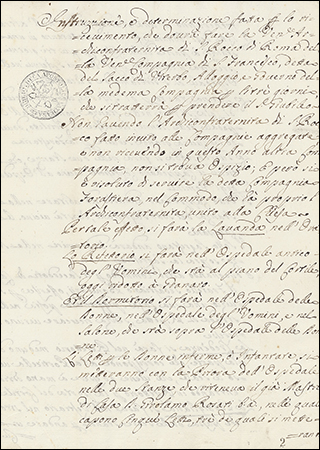 Instruzzione, e determinazione fatta p lo ri=
cevimento, che dovrà fare la Ven. Ar=
chiconfraternita di S. Rocco di Roma del=
la Ven. Compagnia di S. Francesco, detta
del Sacco di Viterbo, Alloggio, e
la medema Compagnia p trè giorni,
che si tratterrà p prendere il S. Giubileo
Non havendo l'Archiconfraternita di S. Roc=
co fatto invito alle Compagnie aggregate
e non ricevendo in questo Anno altra Com=
pagnia, non si trova Ospizio; e però si è
risoluto di servire la detta Compagnia
Forastiera nel commodo, che hà la propria
Archiconfraternita unito alla Chiesa
Per tale effetto si farà la Lavanda nell'Ora=
torio.
Lo Refettorio si farà nell'Ospedale antico
degl'Uomini, che stà al piano del Cortile
oggi ridotto à Granaro.
Et il Dormitorio si farà nell'Ospedale delle
Donne, nell'Ospedale degl'Uomini, e nel
Salone, che stà sopra l'Ospedale delle Don=
ne
Li Letti p le Donne inferme, ò Infantate si
metteranno con la Priora dell'Ospedale
nelle due stanze che riteneva il già Mastro
di Casa S. Girolamo Rosati, nelle quali
capono cinque Letti, trè de quali si mette=
=ran=